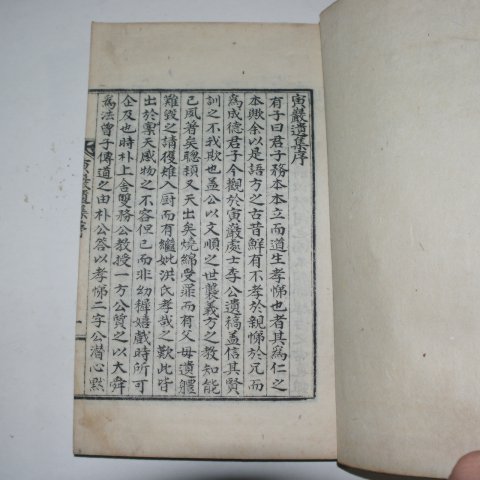 寅巖遺集序
有子曰君子務本本立而道生孝悌也者其爲仁之
本歟余以是語方之古昔鮮有不孝於親悌於兄而
爲成德君子今觀於寅巖處士李公遺稿益信其賢
訓之不我欺也盖公以文順之世襲義方之教知能
已夙著矣聰穎又天出矣燒綿受罪而有父母遺軆
難毁之請後雉入厨而有繼妣洪氏孝哉之歎此皆
出於禀天感物之不容但已而非幼穉嬉戲時所可
企及也時朴上舍雙務公教授一方公質之以大舜
爲法曾子傳道之由朴公答以孝悌二字公潜心黙
寅巖遺集序
一